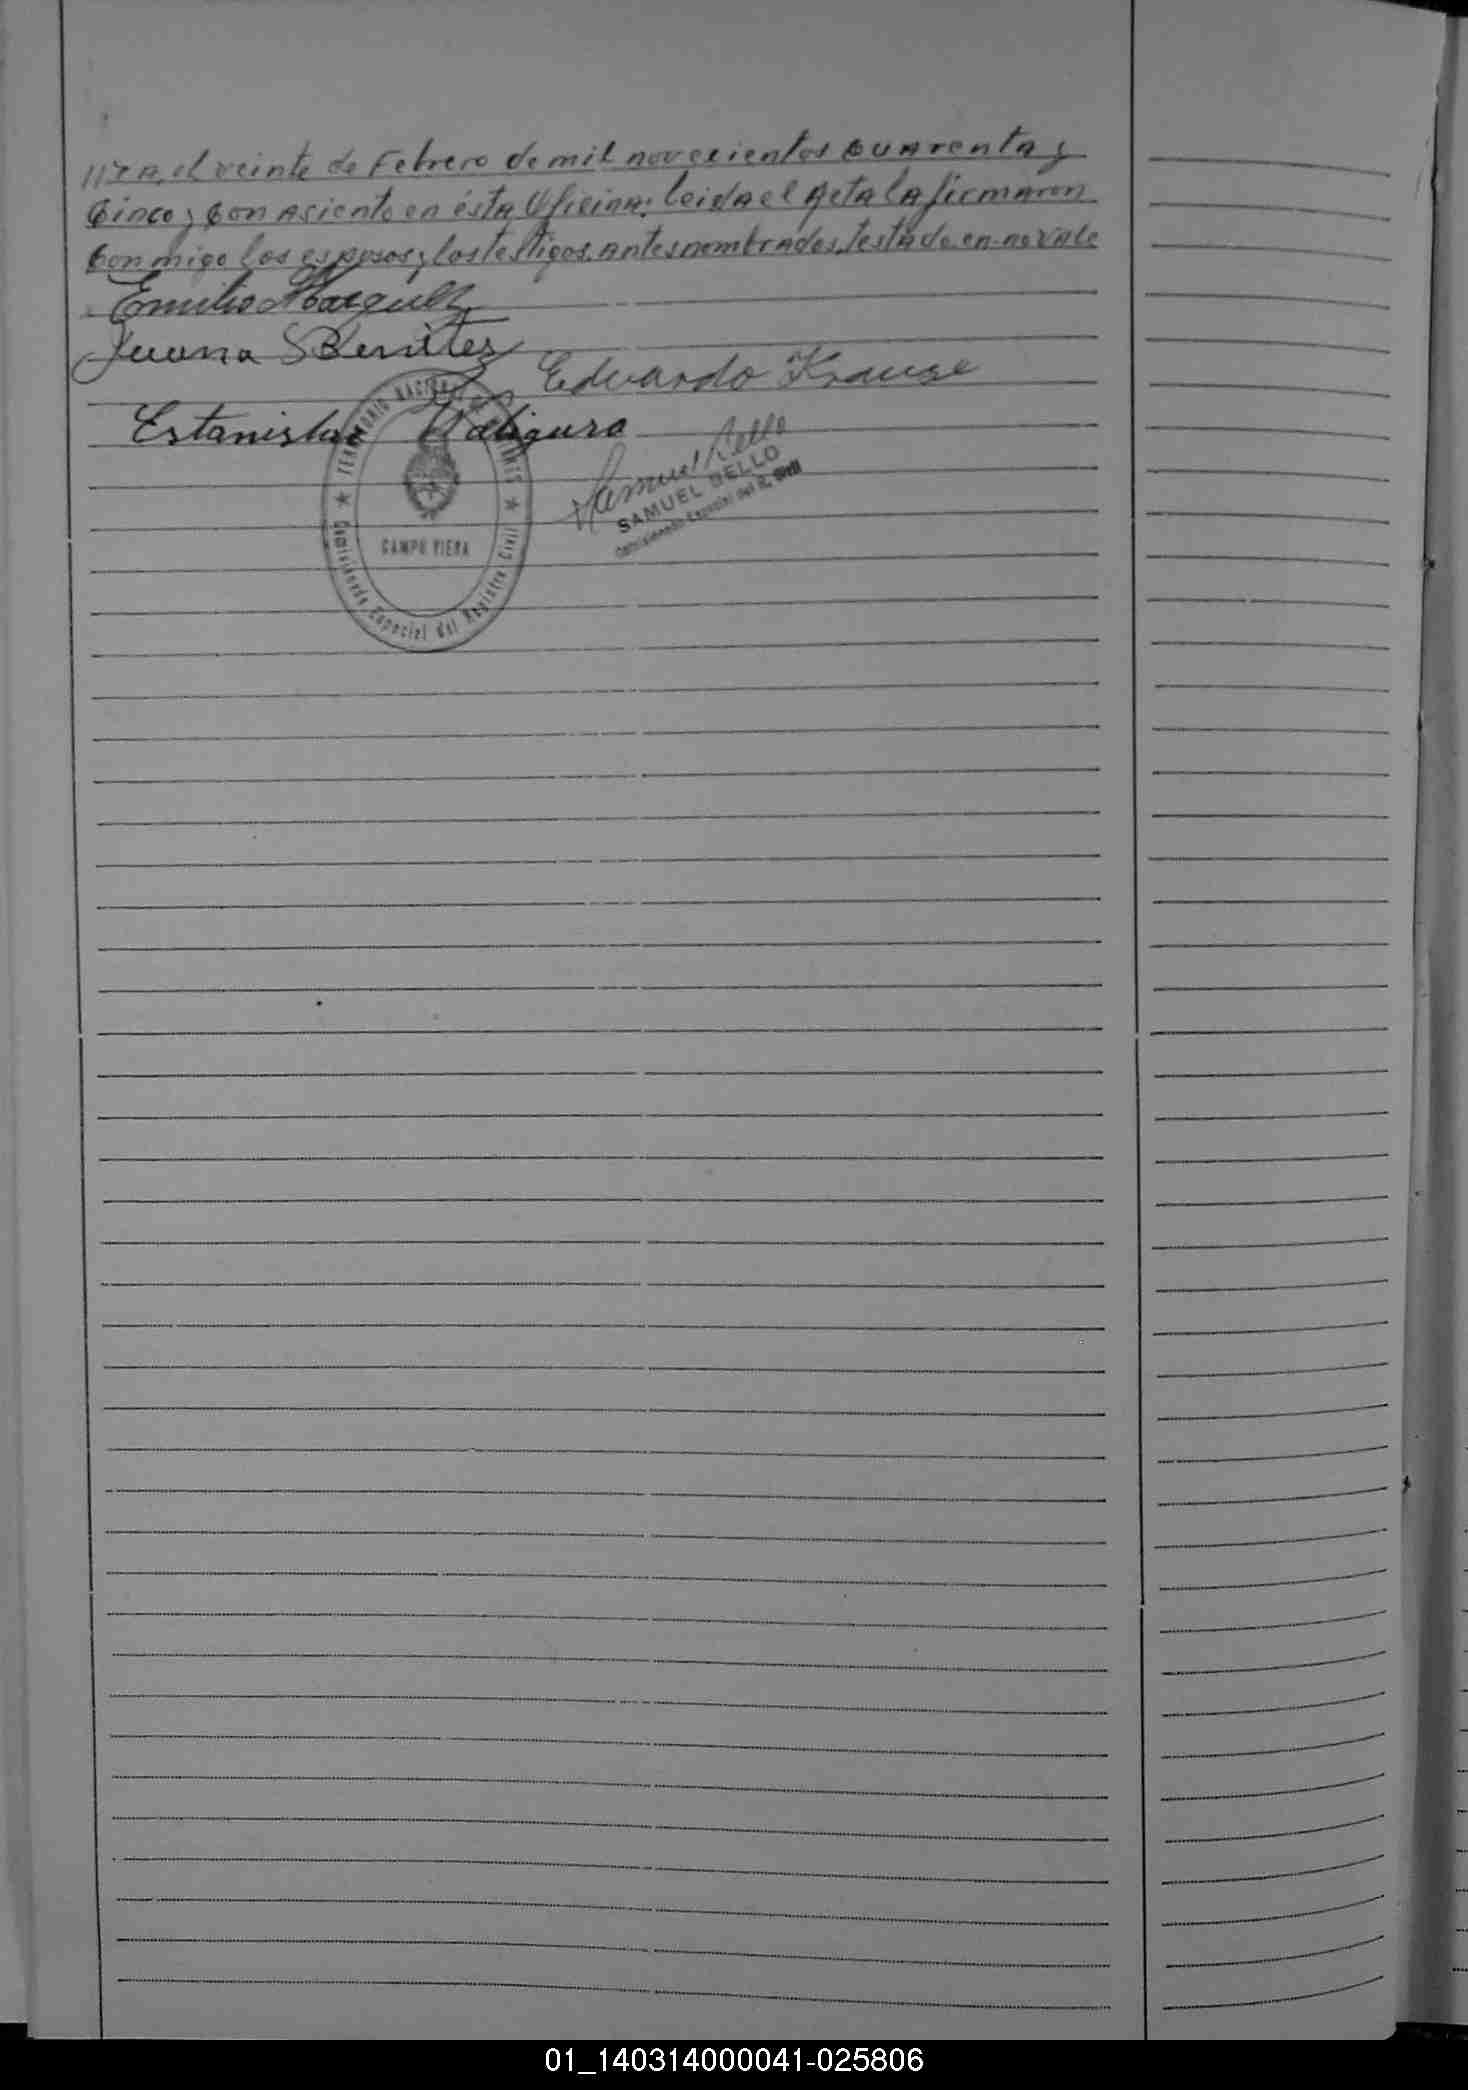 el veinte de Febrero de mil novecientos cuarenta y
cinco, con asiento en ésta Oficina; leida el Acta la firmaron
conmigo los esposos y los testigos antes nombrados, testado en-no vale
Emilio
Juana Benitez
Eduardo Krause
Estanislao
Samuel Bello
SAMUEL BELLO
Comisionado Especial del R. Civil
TERRITORIO NACIONAL DE MISIONES
CAMPO VIERA
Comisionado Especial del Registro Civil
01_140314000041-025806